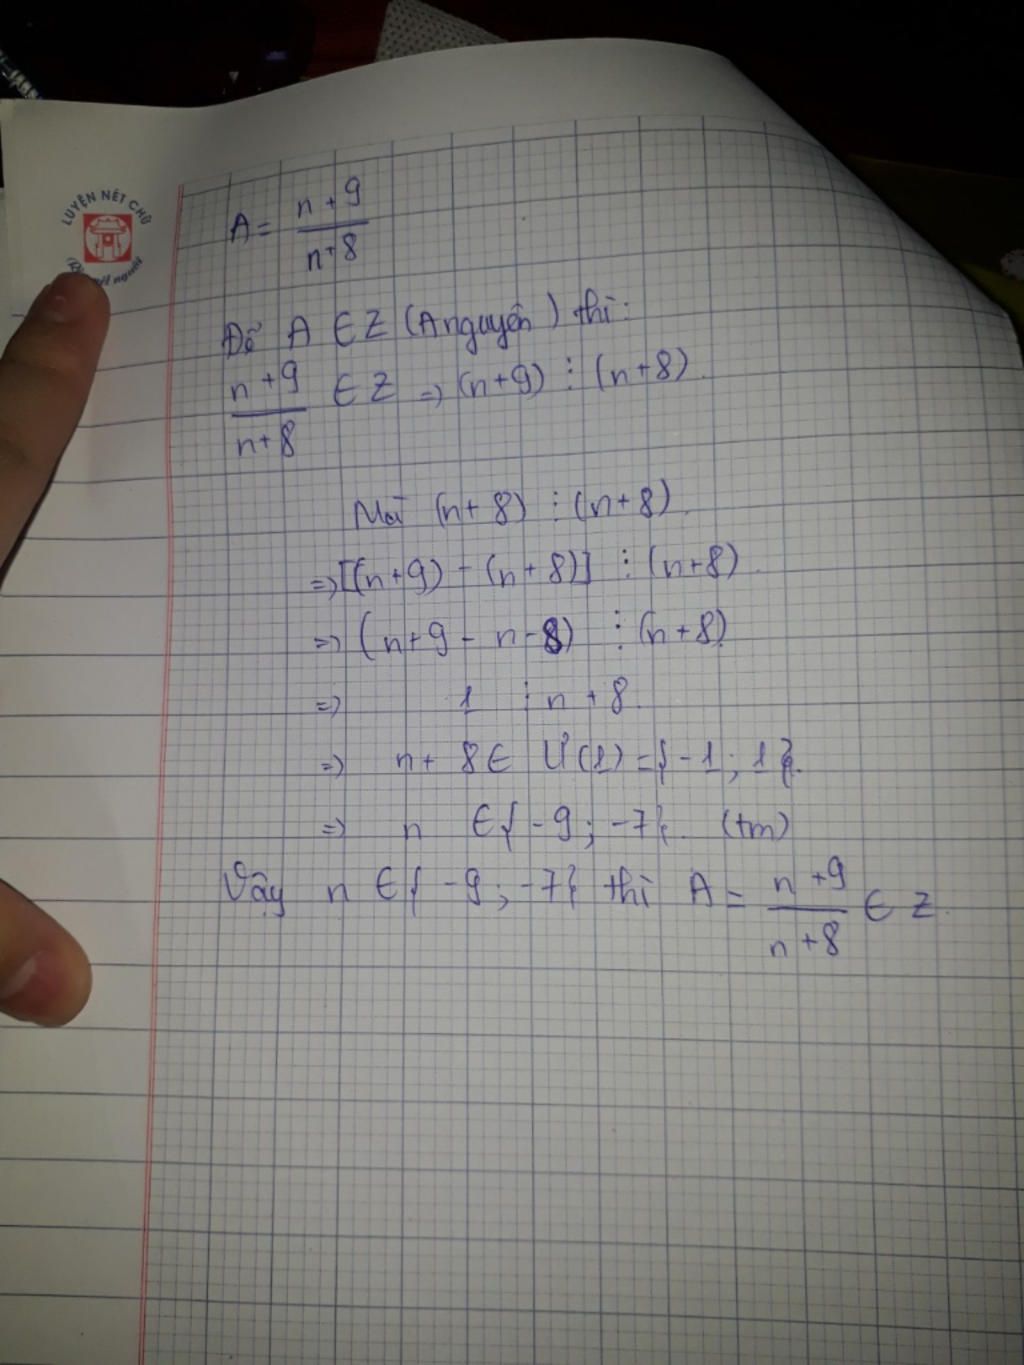 LUYỆN NÉT CHỮ
nết người
A = \frac{n+9}{n+8}
Để A ∈ Z (A nguyên) thì:
\frac{n+9}{n+8} ∈ Z => (n+9) ⋮ (n+8).
Mà (n+8) ⋮ (n+8).
=> [(n+9) - (n+8)] ⋮ (n+8).
=> (n+9 - n-8) ⋮ (n+8)
=> 1 ⋮ n + 8.
=> n + 8 ∈ Ư(1) = {-1; 1}.
=> n ∈ {-9; -7}. (tm)
Vậy n ∈ {-9; -7} thì A = \frac{n+9}{n+8} ∈ Z.